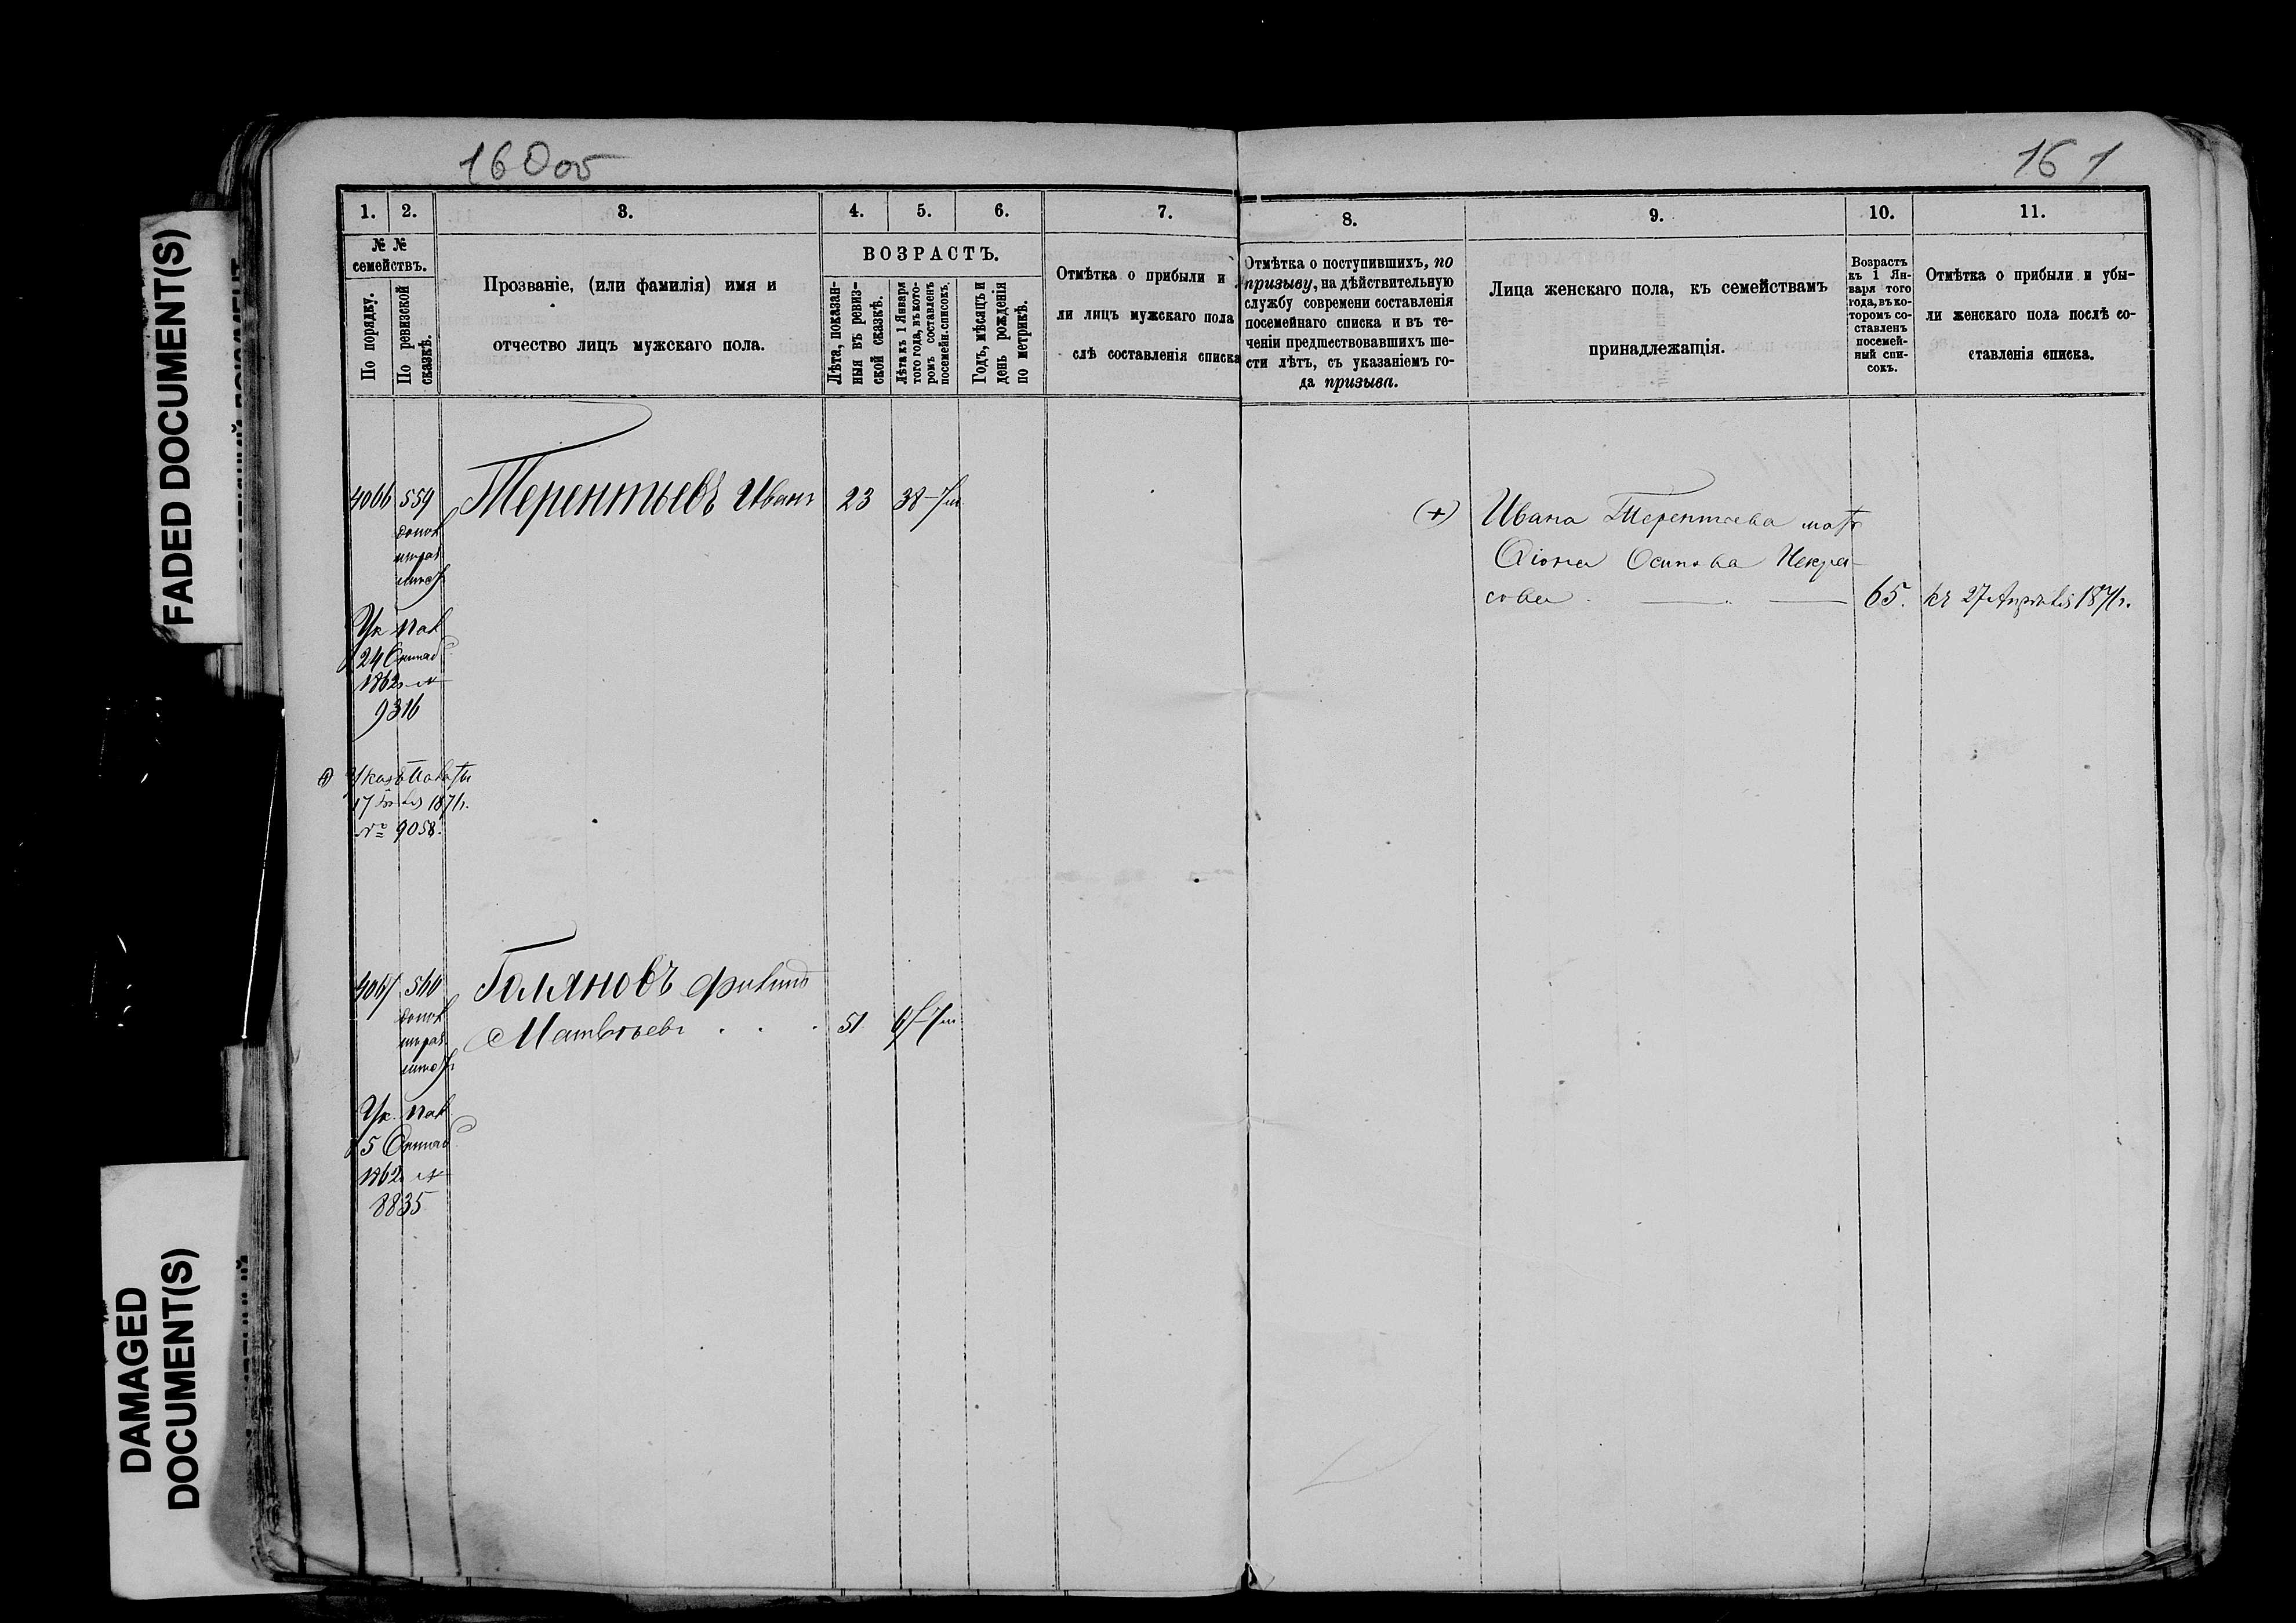 FADED DOCUMENT(S)
DAMAGED
DOCUMENT(S)
160 об
161
1.
2.
3.
4.
5.
6.
7.
8.
9.
10.
11.
№ №
семействъ.
По порядку.
По ревизской
сказкѣ.
Прозваніе, (или фамилія) имя и
отчество лицъ мужскаго пола.
ВОЗРАСТЪ.
Лѣта, показан-
ныя въ ревиз-
ской сказкѣ.
Лѣта къ 1 Января
того года, въ кото-
ромъ составленъ
посемейн. списокъ.
Годъ, мѣсяцъ и
день рожденія
по метрикѣ.
Отмѣтка о прибыли и
ли лицъ мужскаго пола
слѣ составленія списка
Отмѣтка о поступившихъ, по
призыву, на дѣйствительную
службу современи составленія
посемейнаго списка и въ те-
ченіи предшествовавшихъ ше-
сти лѣтъ, съ указаніемъ го-
да призыва.
Лица женскаго пола, къ семействамъ
принадлежащія.
Возрастъ
къ 1 Ян-
варя того
года, въ ко-
торомъ со-
ставленъ
посемей-
ный спи-
сокъ.
Отмѣтка о прибыли и убы-
ли женскаго пола послѣ со-
ставленія списка.
4066 559 Терентьевъ Иванъ 23 38
Ук пал
24
1862 №
9316
Указъ Палаты
17 1871г.
№ 9058.
(+) Ивана Терентьева мать
Осипова Некра-
сова 65. 27 Апрѣля 1871г.
4067 560 Голяновъ Филипъ
Матвѣевъ 51
Ук. пал
5
1862 №
8835